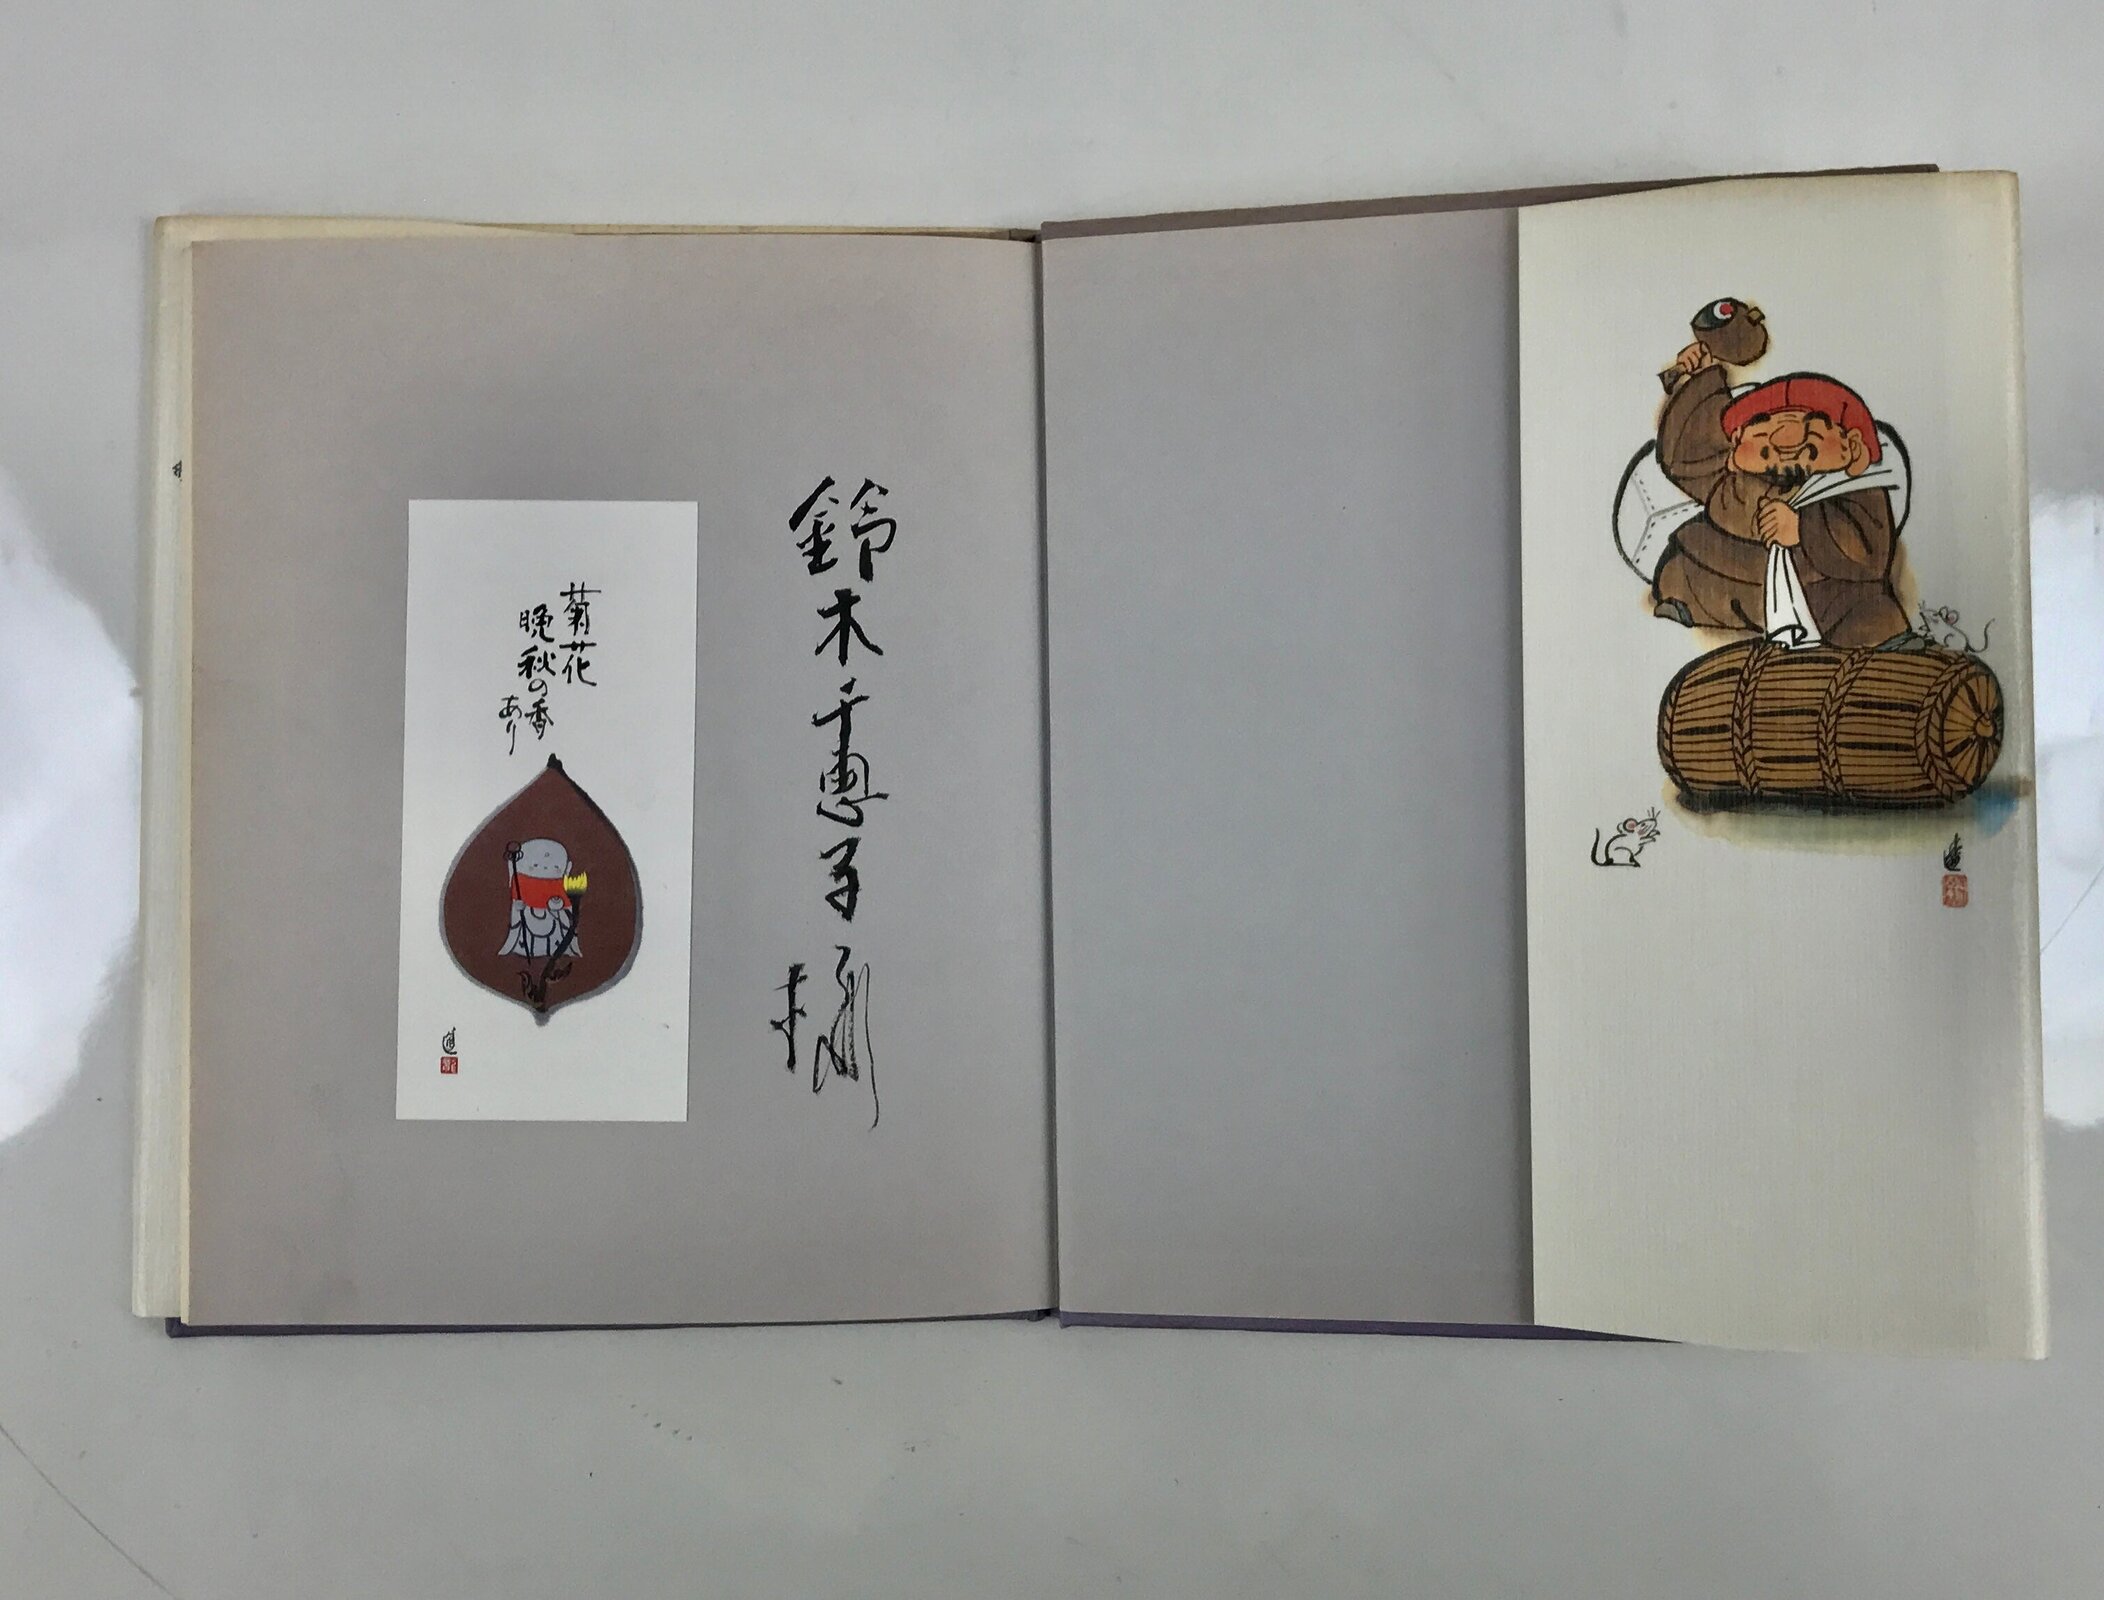 鈴木千恵子様
菊花
晩秋の香
あり